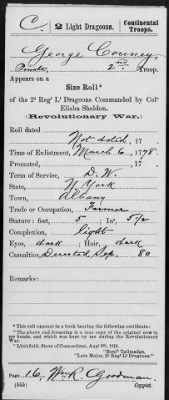 C. 2 Light Dragoons. Continental Troops.
George Couney,
Private 2d. Troop.
Appears on a
Size Roll*
of the 2d Regt Lt Dragoons Commanded by Colo
Elisha Sheldon.
(Revolutionary War.)
Roll dated
Not dated, 17 .
Time of Enlistment, March 6, 1778.
Promoted, , 17 .
Term of Service, D. W.
State, N York
Town, Albany
Trade or Occupation, Farmer
Stature: feet, 5 ; in., 5 1/2
Complexion, light
Eyes, dark ; Hair, dark
Casualties, Deserted Sep. 80
Remarks:
* This roll appears in a book bearing the following certificate:
"The above and foregoing is a true copy of the original now in
my hands, and which was kept by me during the Revolutionary
War.
"Litchfield, State of Connecticut,
"Benj Tallmadge,
"Late Major, 2d Regt Lt Dragoons."
Page 16, Wm R. Goodman
(555) Copyist.